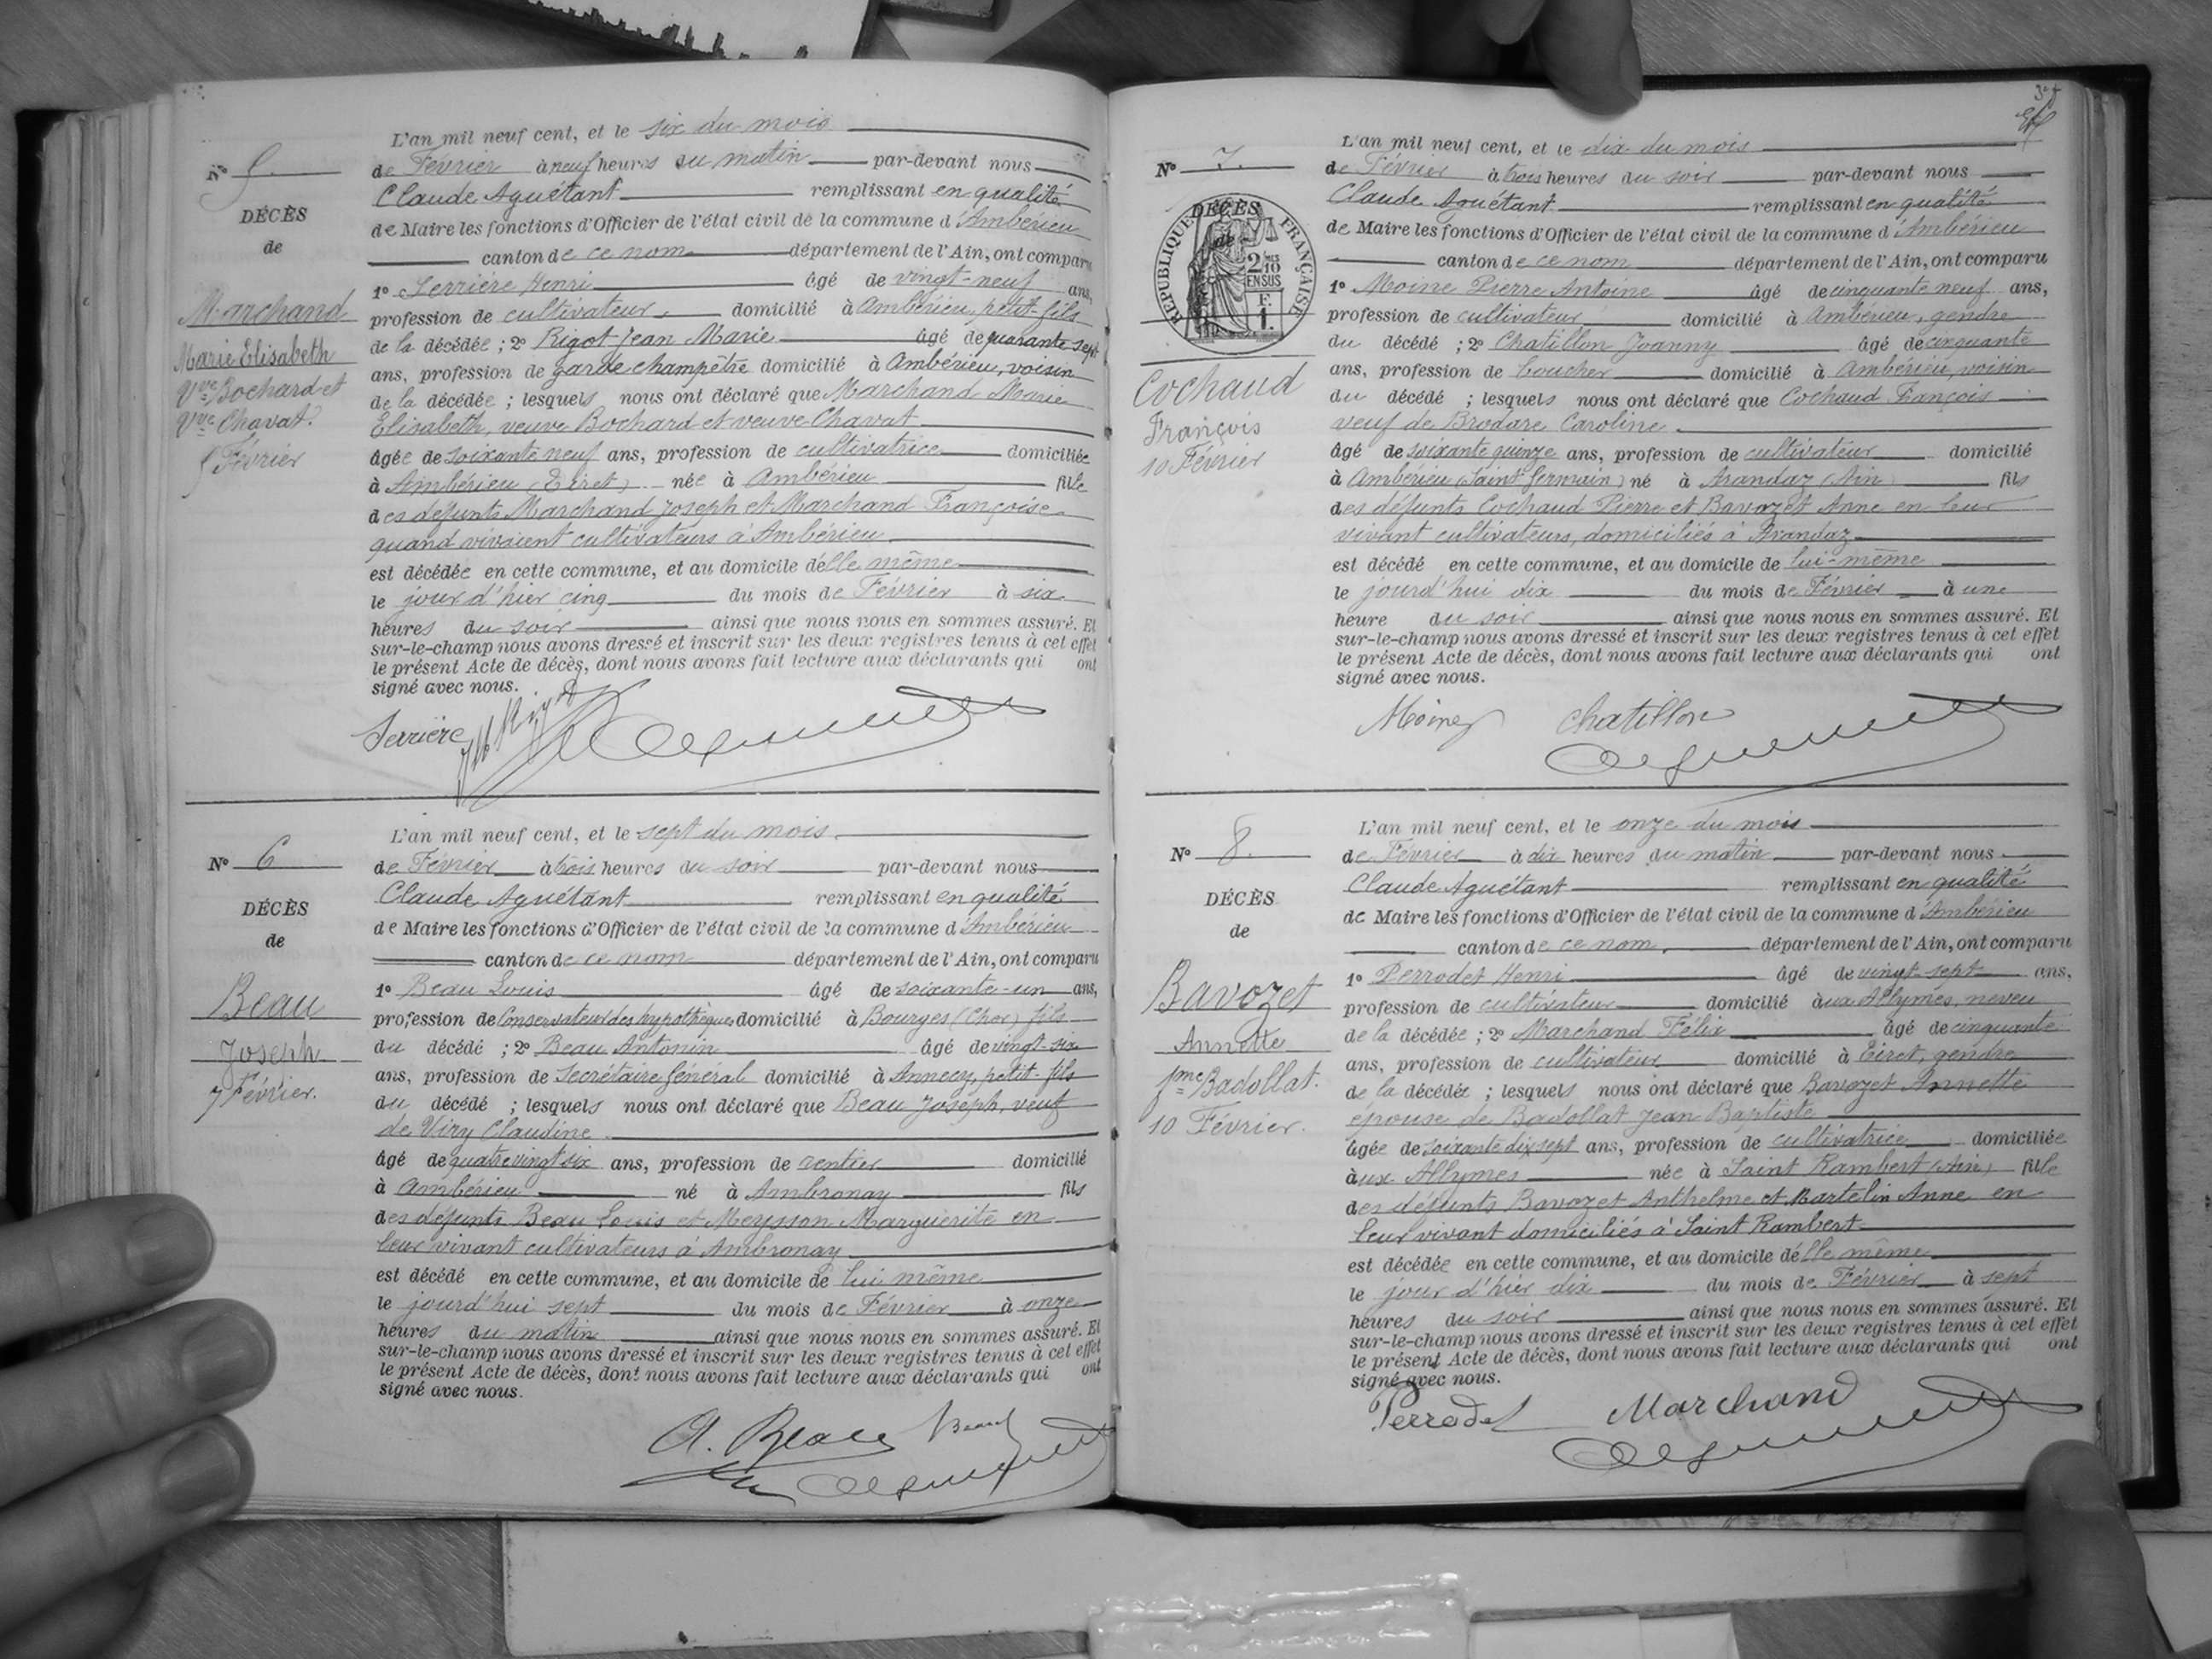 L'an mil neuf cent, et le six du mois
N° 5.
de Février à neuf heures du matin par-devant nous
Claude Aguétant remplissant en qualité
DÉCÈS
de Maire les fonctions d'Officier de l'état civil de la commune d'Ambérieu
de
canton de ce nom département de l'Ain, ont comparu
1° Serrière Henri âgé de vingt-neuf ans,
Marchand
profession de cultivateur, domicilié à Ambérieu, petit-fils
de la décédée ; 2° Rigot Jean Marie âgé de quarante sept
Marie Elisabeth
ans, profession de garde champêtre domicilié à Ambérieu, voisin
Vve Bochard et
de la décédée ; lesquels nous ont déclaré que Marchand Marie
Vve Chavat.
Elisabeth, veuve Bochard et veuve Chavat
5 Février
âgée de soixante neuf ans, profession de cultivatrice domiciliée
à Ambérieu (Tiret) née à Ambérieu fille
des défunts Marchand Joseph et Marchand Françoise
quand vivaient cultivateurs à Ambérieu
est décédée en cette commune, et au domicile d'elle même
le jour d'hier cinq du mois de Février à six
heures du soir ainsi que nous nous en sommes assuré. Et
sur-le-champ nous avons dressé et inscrit sur les deux registres tenus à cet effet
le présent Acte de décès, dont nous avons fait lecture aux déclarants qui ont
signé avec nous.
Serrière
L'an mil neuf cent, et le sept du mois
N° 6
de Février à trois heures du soir par-devant nous
Claude Aguétant remplissant en qualité
DÉCÈS
de Maire les fonctions d'Officier de l'état civil de la commune d'Ambérieu
de
canton de ce nom département de l'Ain, ont comparu
1° Beau Louis âgé de soixante-un ans,
Beau
profession de Conservateur des hypothèques domicilié à Bourges (Cher) fils
Joseph
du décédé ; 2° Beau Antonin âgé de vingt-six
ans, profession de Secrétaire Général domicilié à Annecy, petit-fils
7 Février.
du décédé ; lesquels nous ont déclaré que Beau Joseph, veuf
de Viry Claudine
âgé de quatre vingt six ans, profession de rentier domicilié
à Ambérieu né à Ambronay fils
des défunts Beau Louis et Meysson Marguerite en
leur vivant cultivateurs à Ambronay
est décédé en cette commune, et au domicile de lui même
le jourd'hui sept du mois de Février à onze
heures du matin ainsi que nous nous en sommes assuré. Et
sur-le-champ nous avons dressé et inscrit sur les deux registres tenus à cet effet
le présent Acte de décès, dont nous avons fait lecture aux déclarants qui ont
signé avec nous.
A. Beau Beau
L'an mil neuf cent, et le dix du mois
N° 7.
de Février à trois heures du soir par-devant nous
Claude Aguétant remplissant en qualité
RÉPUBLIQUE FRANÇAISE
DÉCÈS
de
2 10mes
EN SUS
F.
1.
de Maire les fonctions d'Officier de l'état civil de la commune d'Ambérieu
canton de ce nom département de l'Ain, ont comparu
1° Moine Pierre Antoine âgé de cinquante neuf ans,
profession de cultivateur domicilié à Ambérieu, gendre
du décédé ; 2° Chatillon Joanny âgé de cinquante
Cochaud
ans, profession de boucher domicilié à Ambérieu, voisin
du décédé ; lesquels nous ont déclaré que Cochaud François
François
veuf de Brodare Caroline
10 Février
âgé de soixante quinze ans, profession de cultivateur domicilié
à Ambérieu (Saint Germain) né à Arandaz (Ain) fils
des défunts Cochaud Pierre et Bavozet Anne en leur
vivant cultivateurs, domiciliés à Arandaz
est décédé en cette commune, et au domicile de lui-même
le jourd'hui dix du mois de Février à une
heure du soir ainsi que nous nous en sommes assuré. Et
sur-le-champ nous avons dressé et inscrit sur les deux registres tenus à cet effet
le présent Acte de décès, dont nous avons fait lecture aux déclarants qui ont
signé avec nous.
Moine Chatillon
L'an mil neuf cent, et le onze du mois
N° 8.
de Février à dix heures du matin par-devant nous
Claude Aguétant remplissant en qualité
DÉCÈS
de Maire les fonctions d'Officier de l'état civil de la commune d'Ambérieu
de
canton de ce nom département de l'Ain, ont comparu
1° Perrodet Henri âgé de vingt-sept ans,
Bavozet
profession de cultivateur domicilié aux Allymes, neveu
de la décédée ; 2° Marchand Félix âgé de cinquante
Annette
ans, profession de cultivateur domicilié à Tiret, gendre
fme Badollat.
de la décédée ; lesquels nous ont déclaré que Bavozet Annette
10 Février.
épouse de Badollat Jean Baptiste
âgée de soixante dix sept ans, profession de cultivatrice domiciliée
aux Allymes née à Saint Rambert (Ain) fille
des défunts Bavozet Anthelme et Martelin Anne en
leur vivant domiciliés à Saint Rambert
est décédée en cette commune, et au domicile d'elle même
le jour d'hier dix du mois de Février à sept
heures du soir ainsi que nous nous en sommes assuré. Et
sur-le-champ nous avons dressé et inscrit sur les deux registres tenus à cet effet
le présent Acte de décès, dont nous avons fait lecture aux déclarants qui ont
signé avec nous.
Perrodet Marchand